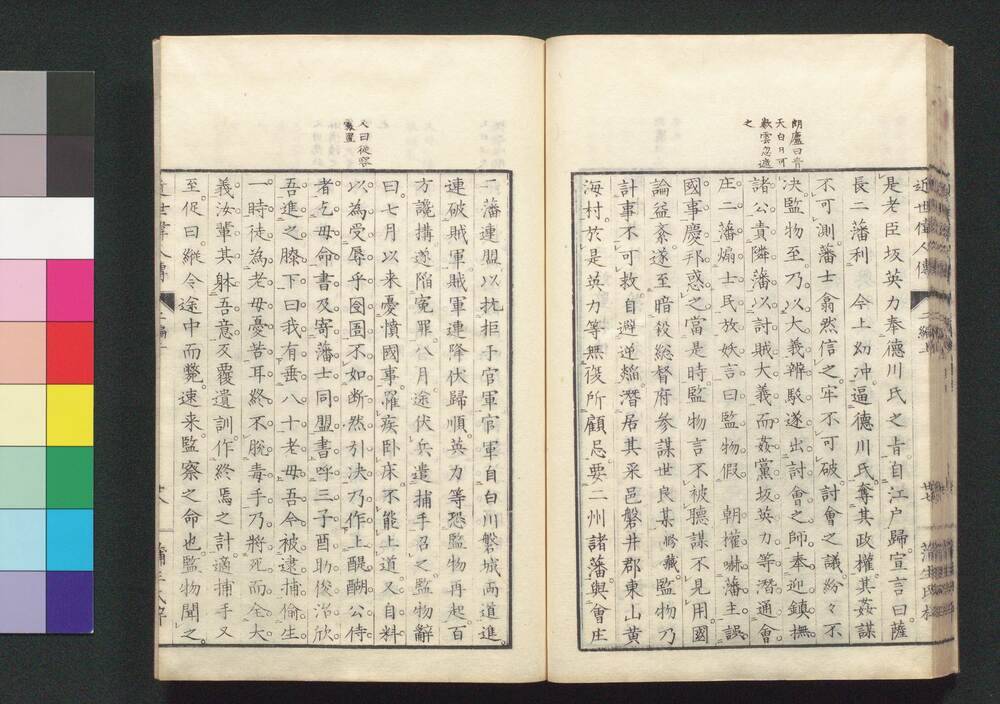 朗廬曰青
天白日可
歎雲忽遮
之
近世偉人傳
是老臣坂英力奉德川氏之旨自江戶歸宣言曰薩
長二藩利　今上幼冲逼德川氏奪其政權其姦謀
不可測藩士翕然信之牢不可破討會之議紛々不
決監物至乃以大義辨駁遂出討會之師奉迎鎮撫
諸公責隣藩以討賊大義而姦黨坂英力等潛通會
庄二藩煽士民放妖言曰監物假　朝權嚇藩主誤
國事慶邦惑之當是時監物言不被聽謀不見用國
論益紊遂至暗殺総督府參謀世良某修藏監物乃
計事不可救自避逆燄潛居其采邑磐井郡東山黃
海村於是英力等無復所顧忌要二州諸藩與會庄
又曰從容
二藩連盟以抗拒于官軍官軍自白川磐城兩道進
連破賊軍賊軍連降伏歸順英力等恐監物再起百
方讒搆遂陷冤罪八月途伏兵遣捕手召之監物辭
曰七月以来憂憤國事罹疾卧床不能上道又自料
以為受辱乎囹圄不如断然引決乃作上醍醐公侍
者乞毋命書及寄藩士同盟書呼三子酉助俊治欣
吾進之膝下曰我有垂八十老母吾今被逮捕偷生
一時徒為老母憂苦耳終不脫毒手乃將死而全大
義汝輩其躰吾意反覆遺訓作終焉之計適捕手又
至促曰縱令途中而斃速来監察之命也監物聞之